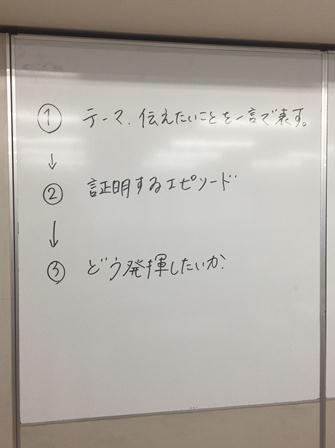 ① テーマ、伝えたいことを一言で表す。
↓
② 証明するエピソード
↓
③ どう発揮したいか?